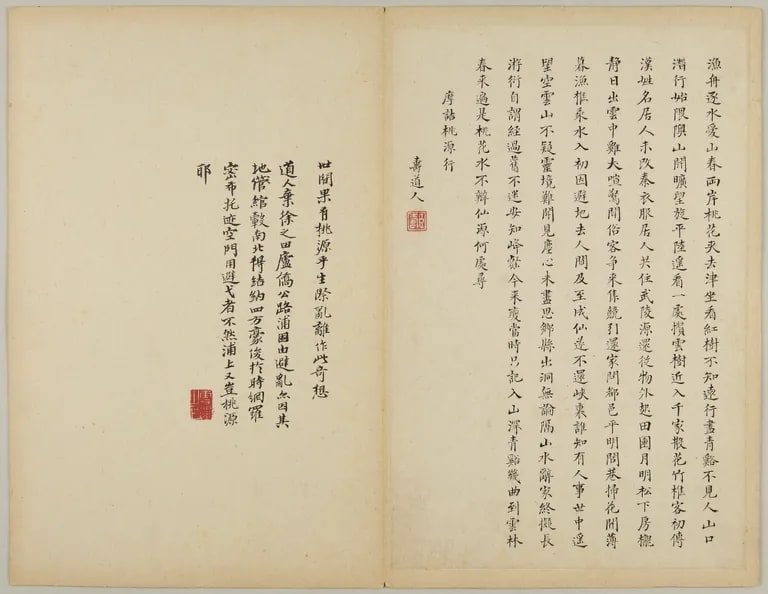 漁舟逐水愛山春兩岸桃花夾去津坐看紅樹不知遠行盡青谿不見人山口
潛行始隈隩山開曠望旋平陸遙看一處攢雲樹近入千家散花竹樵客初傳
漢姓名居人未改秦衣服居人共住武陵源還從物外起田園月明松下房櫳
靜日出雲中雞犬喧驚聞俗客爭來集競引還家問都邑平明閭巷掃花開薄
暮漁樵乘水入初因避地去人間及至成仙遂不還峽裏誰知有人事世中遙
望空雲山不疑靈境難聞見塵心未盡思鄉縣出洞無論隔山水辭家終擬長
游衍自謂經過舊不迷安知峰壑今來變當時只記入山深青谿幾曲到雲林
春來遍是桃花水不辨仙源何處尋
摩詰桃源行
壽道人
世間果有桃源乎生際亂離作此奇想
道人棄徐之田廬僑公路浦固由避亂亦因其
地管綰轂南北得結納四方豪俊於時網羅
密布托迹空門用避弋者不然浦上又豈桃源
耶